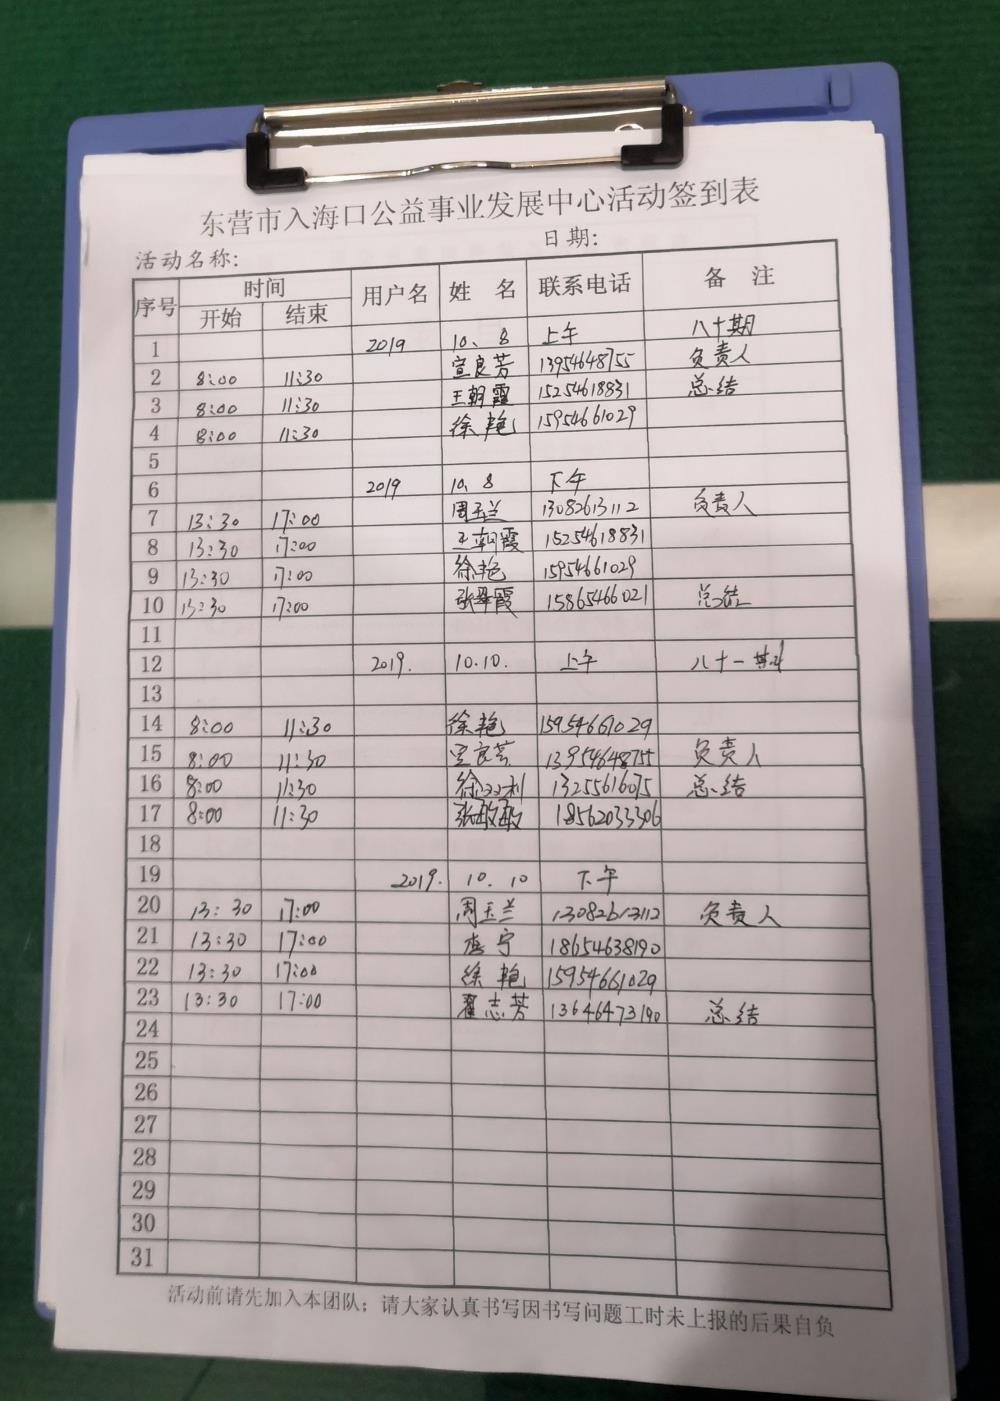 东营市入海口公益事业发展中心活动签到表
活动名称: 日期:
序号 时间 用户名 姓 名 联系电话 备 注
开始 结束
1 2019 10、8 上午 八十期
2 8:00 11:30 宣良芳 13954648755 负责人
3 8:00 11:30 王朝霞 15254618831 总结
4 8:00 11:30 徐艳 15954661029
5
6 2019 10、8 下午
7 13:30 17:00 周玉兰 13082613112 负责人
8 13:30 17:00 王朝霞 15254618831
9 13:30 17:00 徐艳 15954661029
10 13:30 17:00 张翠霞 15865466021 总结
11
12 2019. 10.10. 上午 八十一期
13
14 8:00 11:30 徐艳 15954661029
15 8:00 11:30 宣良芳 13954648755 负责人
16 8:00 11:30 徐双利 13255616075 总结
17 8:00 11:30 张敏敏 18562033306
18
19 2019. 10.10 下午
20 13:30 17:00 周玉兰 13082613112 负责人
21 13:30 17:00 李宁 18654638190
22 13:30 17:00 徐艳 15954661029
23 13:30 17:00 翟志芳 13646473190 总结
24
25
26
27
28
29
30
31
活动前请先加入本团队;请大家认真书写因书写问题工时未上报的后果自负